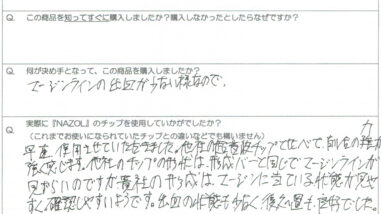 Q. この商品を知ってすぐに購入しましたか？購入しなかったとしたらなぜですか？
Q. 何が決め手となって、この商品を購入しましたか？
マージンラインの出血が少ない様なので、
Q. 実際に『NAZOL』のチップを使用していかがでしたか？
（これまでお使いになられていたチップとの違いなどでも構いません）
早速 使用させていただきました。他社の チップと比べて、
強く感じます。他社のチップの形状は、形成バーと同じでマージンラインが
のですが貴社の形成は、マージンに当ている状態が見や
すく確認しやすいようです。出血の状態も少なく 後の も でした。